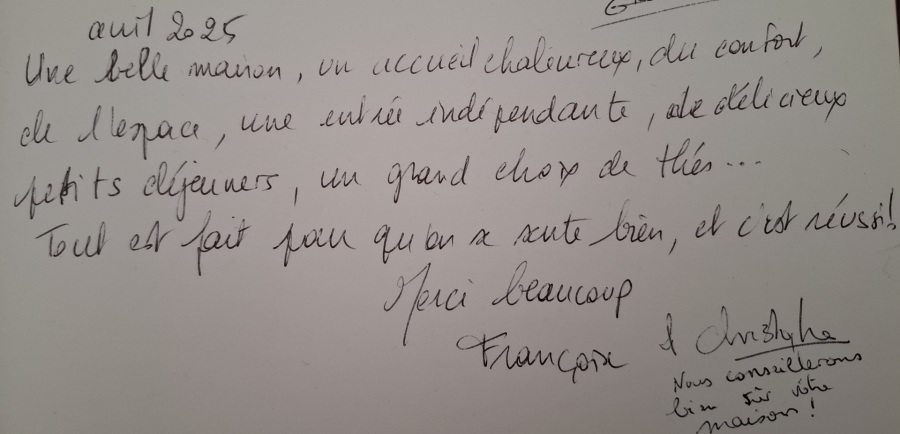 avril 2025
Une belle maison, un accueil chaleureux, du confort,
de l'espace, une entrée indépendante, de délicieux
petits déjeuners, un grand choix de thés...
Tout est fait pour qu'on se sente bien, et c'est réussi!
Merci beaucoup
Françoise & Christophe
Nous conseillerons
bien sûr votre
maison!